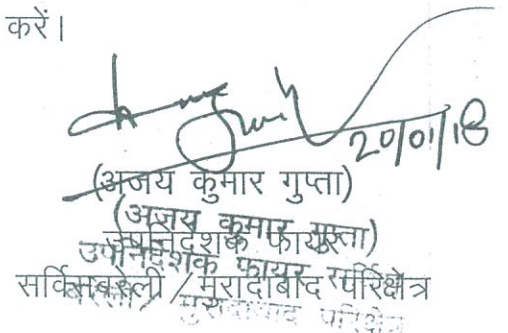 करें।
20/01/18
(अजय कुमार गुप्ता)
(अजय कुमार गुप्ता)
उपनिदेशक फायर
उपनिदेशक फायर सर्विस
सर्विस बरेली / मुरादाबाद परिक्षेत्र
बरेली / मुरादाबाद परिक्षेत्र